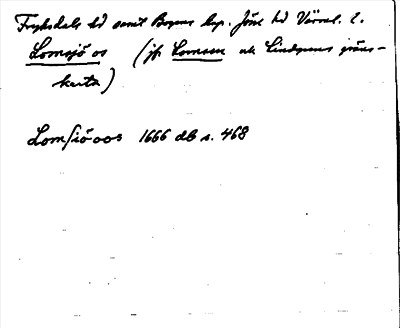 Fryksdals hd samt Bogens kap. Jösse hd Värml. l.
Lomsjö os (jfr Lomsen på Lindgrens gräns-
karta)
Lomsiö oos 1666 db s. 468